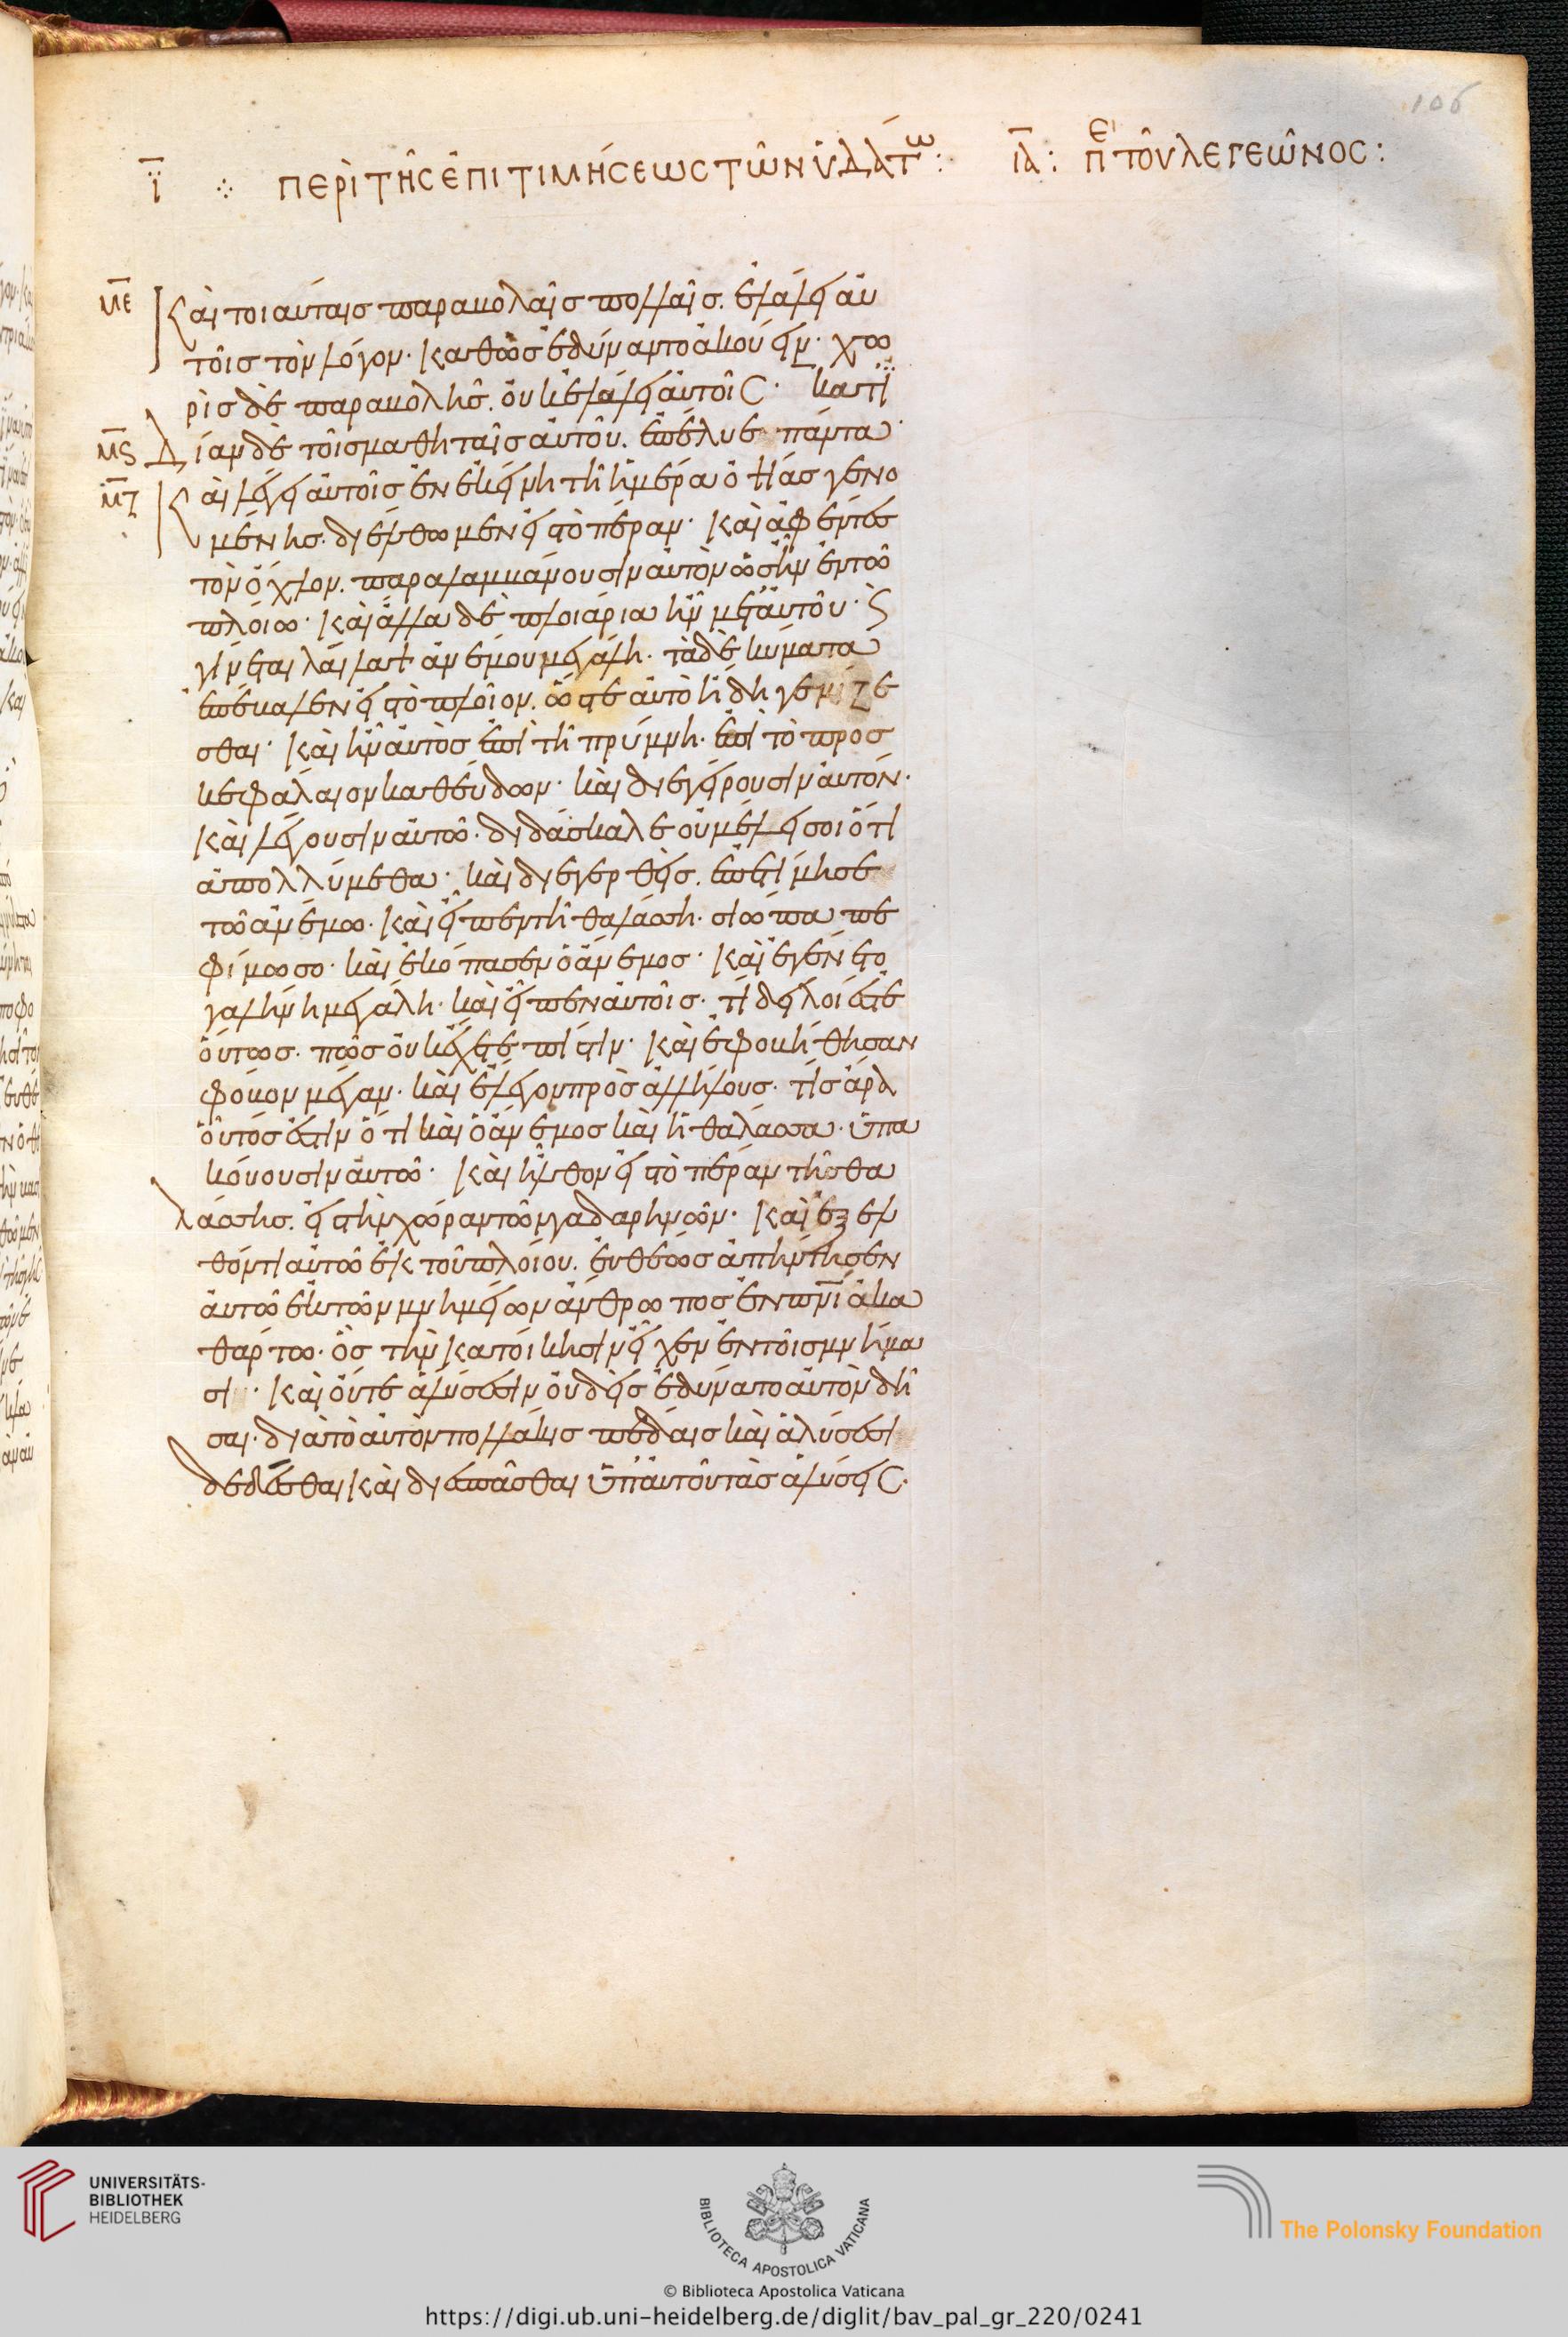 106
ῑ ⁘ ΠΕΡὶ ΤΗ͂Ϲ ἘΠΙΤΙΜΉϹΕΩϹ ΤΩ͂Ν ὙΔΆΤω: ΙΑ: ΠΕ ΤΟῦ ΛΕΓΕΩ͂ΝΟϹ:
ΜΕ Καὶ τοιαύταις παραβολαῖς πολλαῖς. ἐλάλει αὐ
τοῖς τὸν λόγον· καθὼς ἐδύναντο ἀκούειν· χω
ρὶς δὲ παραβολῆς. οὐκ ἐλάλει αὐτοῖς· κατ ἰ
Μς δίαν δὲ τοῖς μαθηταῖς αὐτοῦ. ἐπέλυε πάντα·
ΜΖ Καὶ λέγει αὐτοῖς ἐν ἐκείνη τῆ ἡμέρα ὀψίας γενο
μένης. διέλθωμεν εἰς τὸ πέραν· Καὶ ἀφέντες
τὸν ὄχλον. παραλαμβάνουσιν αὐτὸν ὡς ἦν ἐν τῶ
πλοίω· Καὶ ἄλλα δὲ πλοιάρια ἦν μετ αὐτοῦ· Ϛ
γίνεται λαίλαψ ἀνέμου μεγάλη. τὰ δὲ κύματα
ἐπέβαλεν εἰς τὸ πλοῖον. ὥστε αὐτὸ ἤδη γεμίζε
σθαι· Καὶ ἦν αὐτὸς ἐπὶ τῆ πρύμνη. ἐπὶ τὸ προσ
κεφάλαιον καθεύδων· καὶ διεγείρουσιν αὐτόν·
Καὶ λέγουσιν αὐτῶ. διδάσκαλε οὐ μέλει σοι ὅτι
ἀπολλύμεθα· καὶ διεγερθεὶς. ἐπετίμησε
τῶ ἀνέμω. Καὶ εἶπεν τῆ θαλάσση. σιώπα πε
φίμωσο· καὶ ἐκόπασεν ὁ ἄνεμος· Καὶ ἐγένετο
γαλήνη μεγάλη. καὶ εἶπεν αὐτοῖς. τί δειλοί ἐστε
οὕτως. πῶς οὐκ ἔχετε πίστιν· Καὶ ἐφοβήθησαν
φόβον μέγαν. καὶ ἔλεγον πρὸς ἀλλήλους. τίς ἄρα
οὗτός ἐστιν ὅτι καὶ ὁ ἄνεμος καὶ ἡ θάλασσα. ὑπα
κούουσιν αὐτῶ· Καὶ ἦλθον εἰς τὸ πέραν τῆς θα
λάσσης. εἰς τὴν χώραν τῶν γαδαρηνῶν· Καὶ ἐξελ
θόντι αὐτῶ ἐκ τοῦ πλοίου. εὐθέως ἀπήντησεν
αὐτῶ ἐκ τῶν μνημείων ἄνθρωπος ἐν πνι ἀκα
θάρτω. ὃς τὴν κατοίκησιν εἶχεν ἐν τοῖς μνήμα
σι· Καὶ οὔτε ἁλύσεσιν οὐδεὶς ἐδύνατο αὐτὸν δῆ
σαι. διὰ τὸ αὐτὸν πολλάκις πέδαις καὶ ἁλύσεσι
δεδέσθαι καὶ διεσπᾶσθαι ὑπ αὐτοῦ τὰς ἁλύσεις·
UNIVERSITÄTS-
BIBLIOTHEK
HEIDELBERG
BIBLIOTECA APOSTOLICA VATICANA
The Polonsky Foundation
© Biblioteca Apostolica Vaticana
https://digi.ub.uni-heidelberg.de/diglit/bav_pal_gr_220/0241